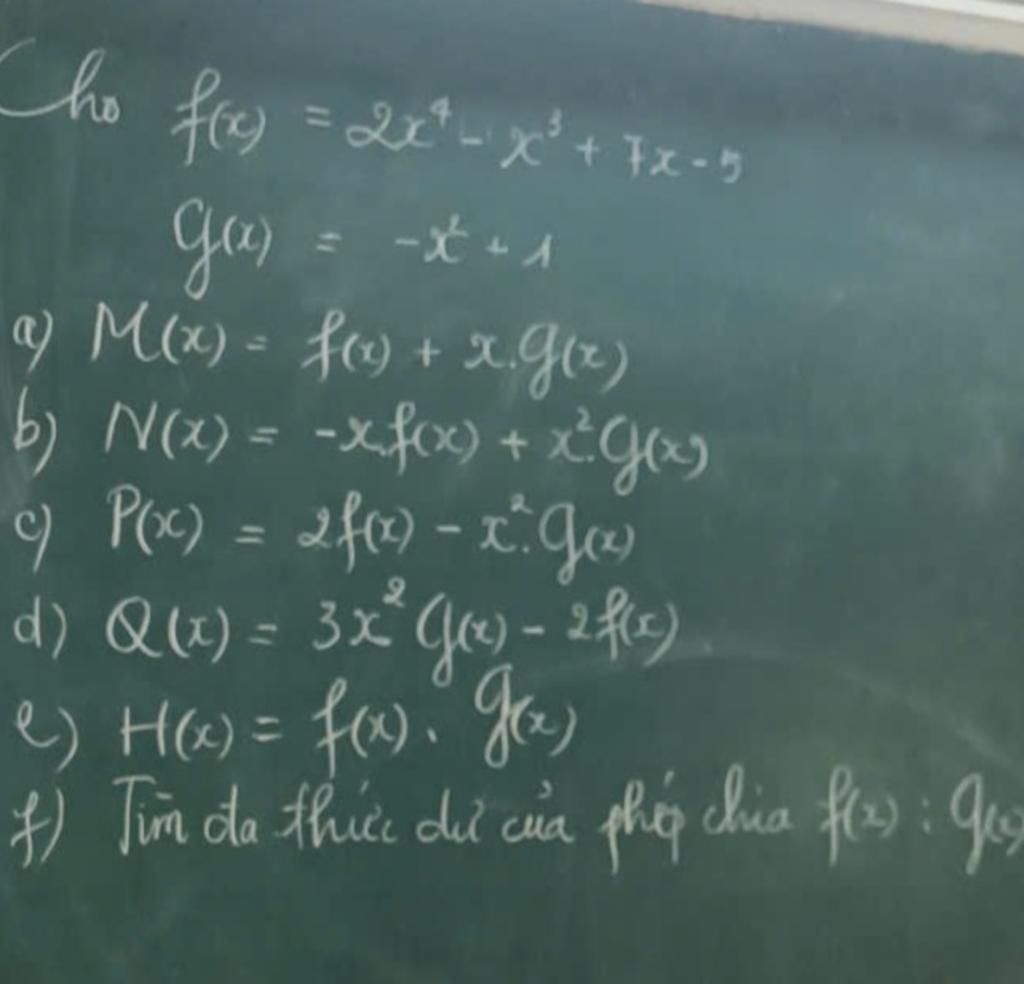 Cho f(x) = 2x⁴ - x³ + 7x - 5
g(x) = -x² + 1
a) M(x) = f(x) + x.g(x)
b) N(x) = -x.f(x) + x².g(x)
c) P(x) = 2f(x) - x².g(x)
d) Q(x) = 3x² g(x) - 2f(x)
e) H(x) = f(x) . g(x)
f) Tìm đa thức dư của phép chia f(x) : g(x)